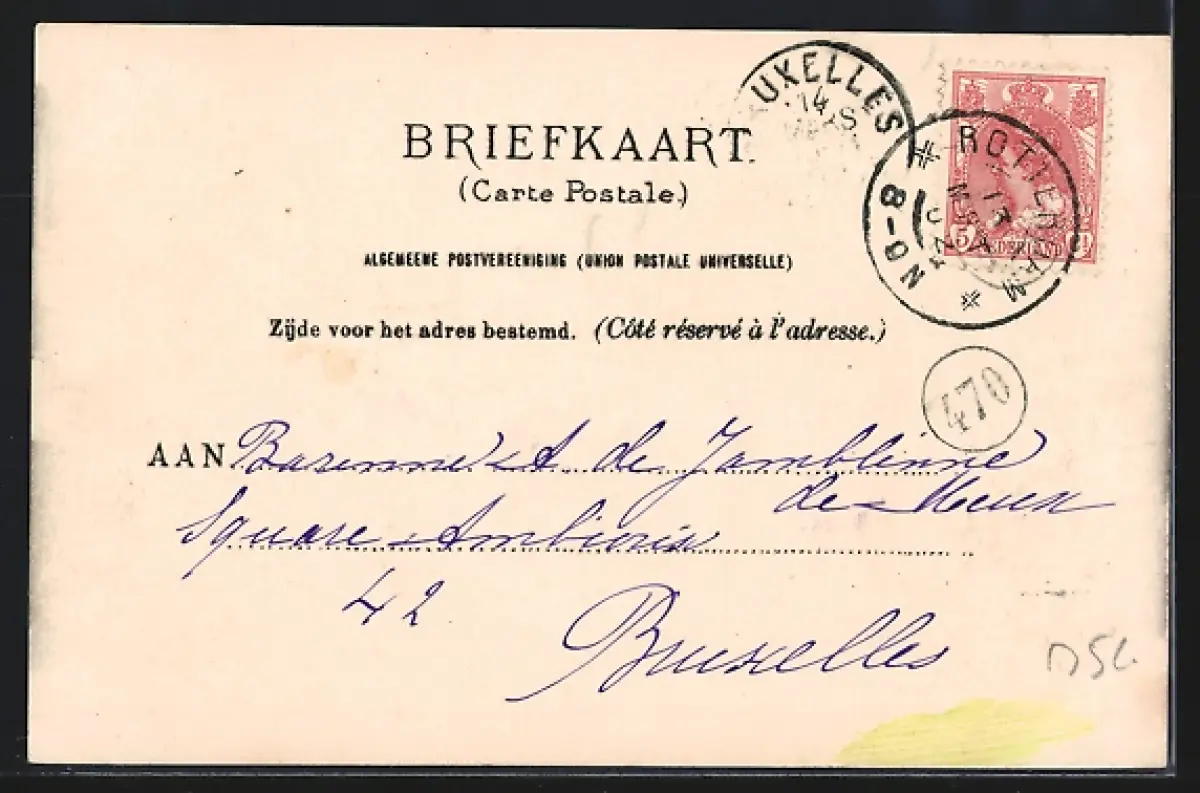 BRIEFKAART.
(Carte Postale.)
ALGEMEENE POSTVEREENIGING (UNION POSTALE UNIVERSELLE)
Zijde voor het adres bestemd. (Côté réservé à l'adresse.)
AAN Baronne A. de Jamblinne
de Meux
Square Ambiorix
42
Bruxelles
UXELLES
14
MARS
ROTTERDAM
13
MRT
NO-8
5
NEDERLAND
470